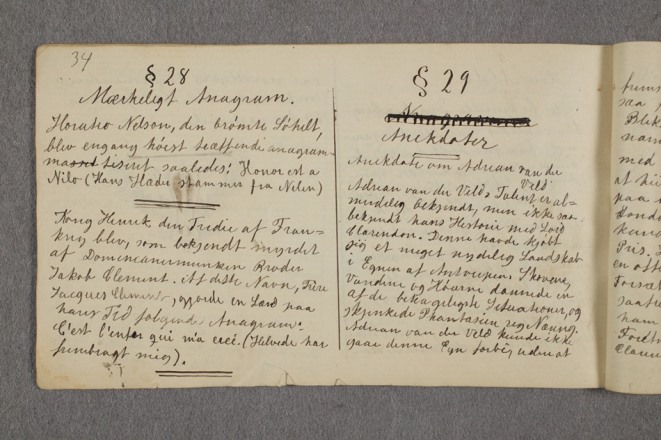 34
§ 28
Mærkeligt Anagram.
Horatio Nelson, den brömte Söhelt,
blev engang höist træffende anagram-
matisirit saaledes: Honor est a
Nilo (Hans Hæder stammer fra Nilen)
Kong Henrik den Tredie af Fran-
krig blev, som bekjendt myrdet
af Dominicanermunken Broder
Jakob Clement. Af dette Navn, Frère
Jacques Clement, gjorde en Lærd paa
hans Tid følgende Anagram:
C'est l'enfer qui m'a créé. (Helvede har
frembragt mig).
§ 29
Anekdoter
Anekdote om Adrian van der
Veld
Adrian van der Velds Talent er al-
mindelig bekjendt, men ikke saa
bekjendt hans Historie med Lord
Clarendon. Denne havde kjöbt
sig et meget nydeligt Landskab
i Egnen af Antwerpens Skovene,
Vandene og Høiene dannede en
af de behageligste Situationer, og
skjænkede Phantasien rig Næring.
Adrian van der Veld kunde ikke
gaae denne Egn forbi, uden at
frems
saa
Blik
nam
med
at hi
paa
Lond
kund
Pris.
en oft
Forsæt
saate
ham
Fortr
Claren